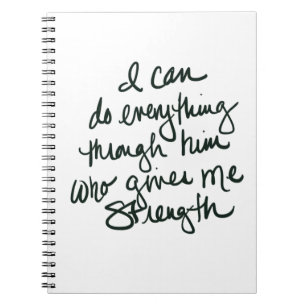 I can
do everything
through him
who gives me
strength